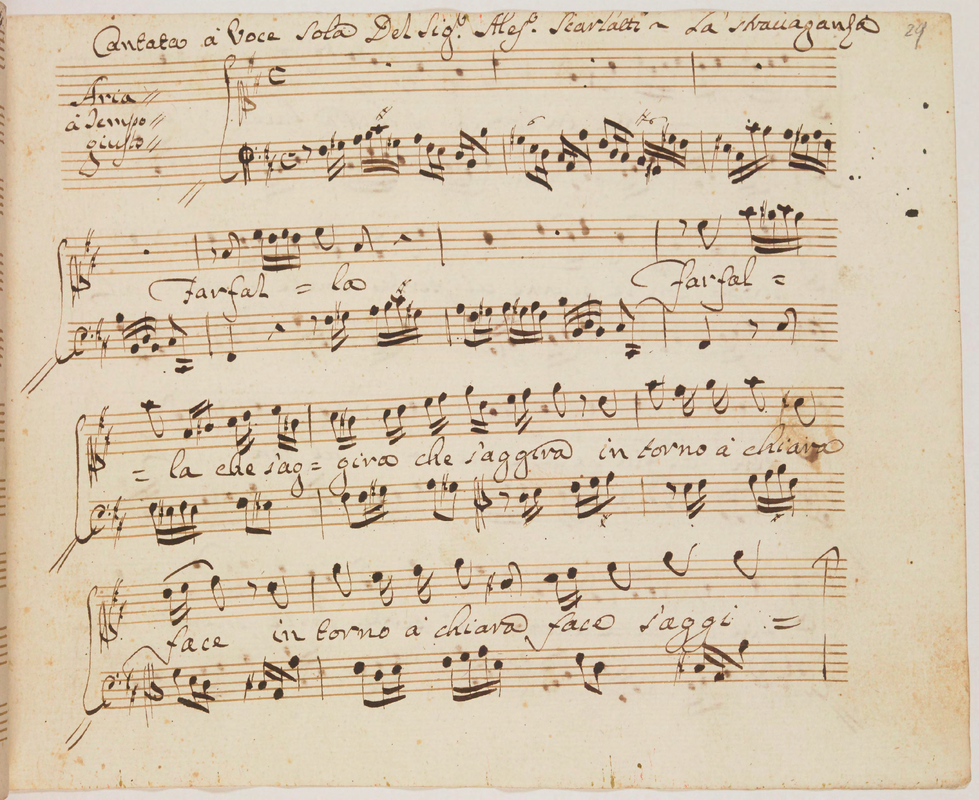 Cantata à Voce Sola Del Sig.r Aless.o Scarlatti ~ La stravaganza
29
Aria
à tempo
giusto
6
6
Farfal = la Farfal =
= la che s'ag = gira che s'aggira in torno à chiara
face in torno à chiara face s'aggi =